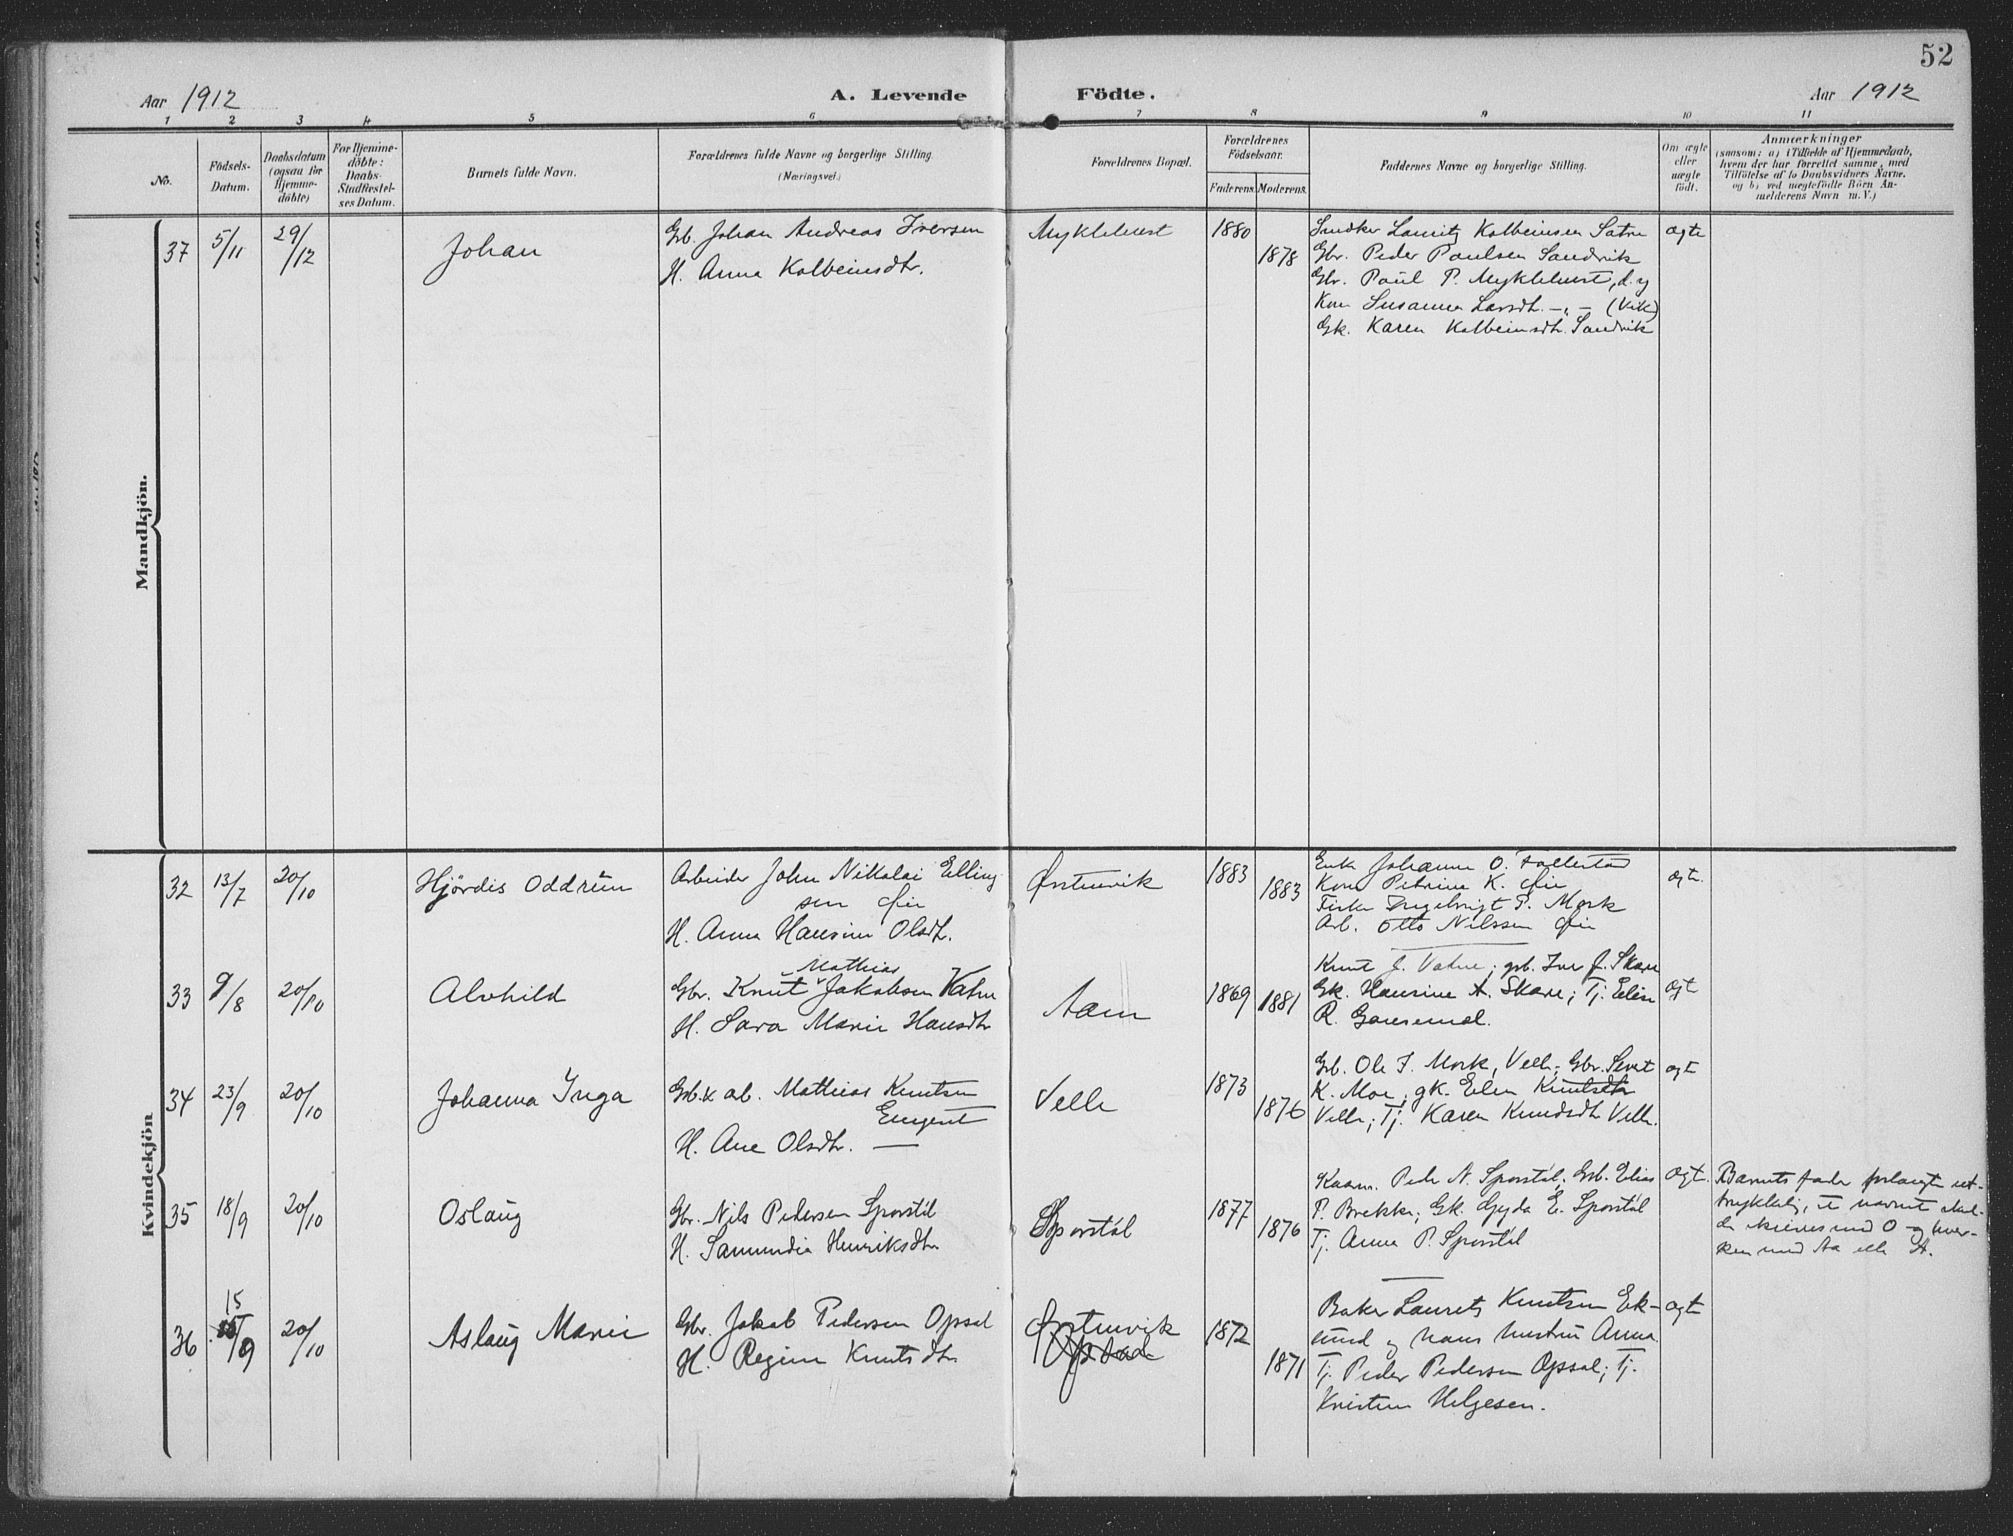 52
Aar 1912 A. Levende Födte. Aar 1912
1 2 3 4 5 6 7 8 9 10 11
No.
Födsels-
Datum.
Daabsdatum
(ogsaa for
Hjemme-
döbte)
For Hjemme-
döbte:
Daabs-
Stadfæstel-
ses Datum.
Barnets fulde Navn.
Forældrenes fulde Navne og borgerlige Stilling
(Næringsvei.)
Forældrenes Bopæl.
Forældrenes
Födselsaar.
Faderens. Moderens.
Faddernes Navne og borgerlige Stilling.
Om ægte
eller
uægte
födt.
Anmærkninger
(saasom: a) i Tilfælde af Hjemmedaab,
hvem der har forrettet samme, med
Tilföielse af to Daabsvidners Navne.
og b) ved uægtefödte Börn An-
melderens Navn m. V.)
Mandkjön.
37 5/11 29/12 Johan
Gb. Johan Andreas Iversen
H. Anna Kolbeinsdtr.
Myklebust 1880
1878
Snedker Lauritz Kolbeinsen Satre
Gbr. Peder Paulsen Sandvik
Gbr. Paul P. Myklebust, d. y
Kone Susanna Larsdtr. -„- (Vik)
Gk. Karen Kolbeinsdtr. Sandvik
ægte
Kvindekjön
32 13/7 20/10 Hjördis Oddrun
Arbeider John Nikolai Elling
sen
H. Anna Hansine Olsdtr.
Ørstenvik 1883
1883
Enk. Johanne O.
Kone Petrine K.
Ingebrigt P. Mork
Arb. Otto Nilssen
ægte.
33 9/8 20/10 Alvhild
Mathias
Gbr. Knut Jakobsen Vatne
H. Sara Marie Hansdtr
Aam 1869 1881
Knut J. Vatne; gb. Iver J. Skare
Gk. Hansine A. Skare; Tj. Eline
R.
ægt
34 23/9 20/10 Johanna Inga
Gb. Mathias Knutsen
H. Ane Olsdtr. —
Velle 1873
1876
Gb. Ole J. Mork, Velle; Gbr. Sivert
K. Moe; gk. Elen Knutsdtr
Velle; Tj. Karen Knudsdtr Velle.
ægt
35 18/9 20/10 Oslaug
Gbr. Nils Pedersen Sporstöl
H. Samundia Henriksdtr
Sporstöl 1877
1876
Peder N. Sporstöl; Gb. Elias
P. Brekke; Gk. Gyda E. Sporstöl
Tj. Anna P. Sporstöl
ægt.
Barnets fader forlangte ut-
trykkelig, at navnet skul-
de skrives med O og hver-
ken med Aa elle A.
36 15/9 20/10 Aslaug Marie
Gbr. Jakob Pedersen Opsal
H. Regine Knutsdtr
Ørstenvik
1872
1871
Baker Laurits Knutsen Ek-
sund og hans hustru Anna
Tj. Peder Pedersen Opsal; Tj.
Kristine Helgesen.
ægt